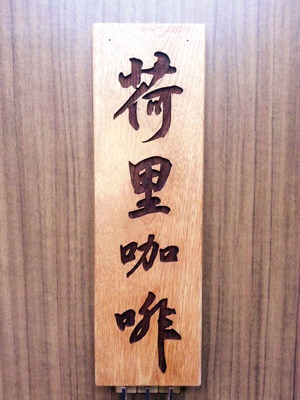 荷里咖啡